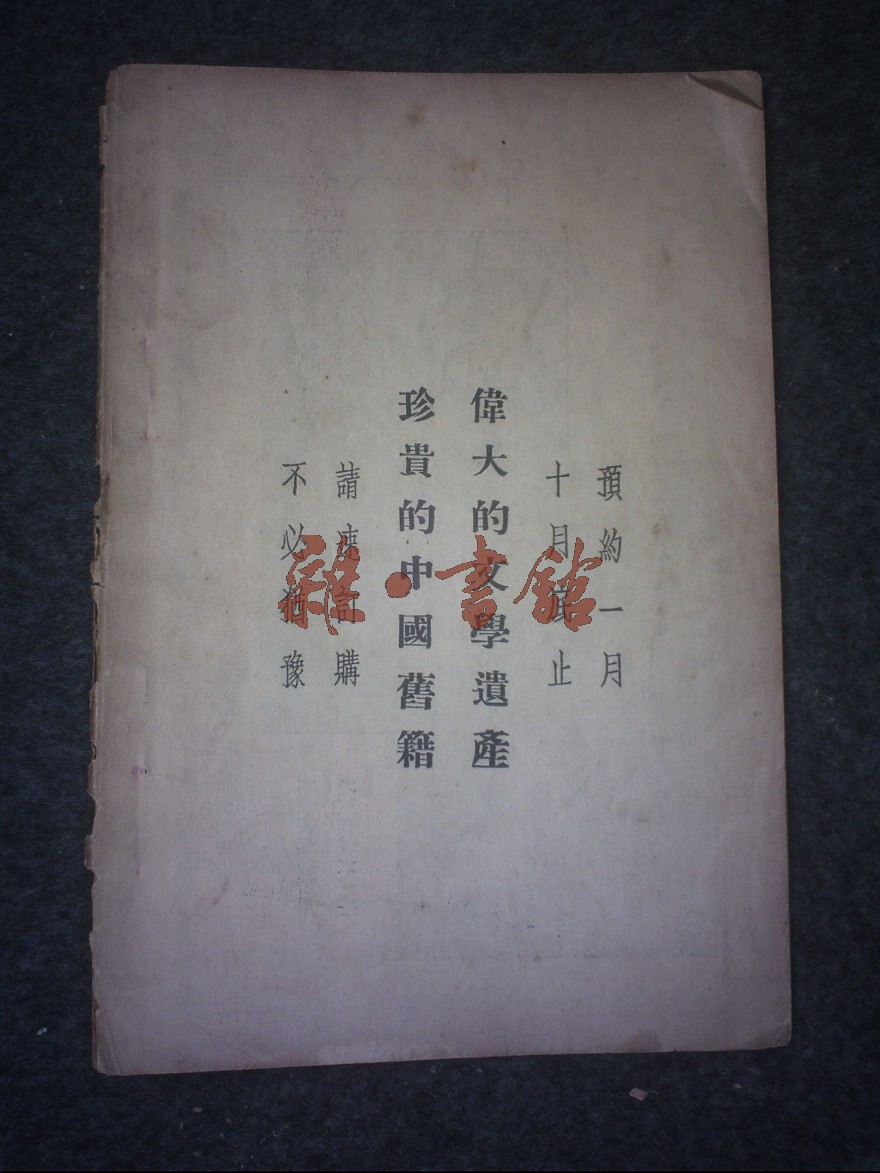 預約一月
十月底止
偉大的文學遺產
珍貴的中國舊籍
請速訂購
不必猶豫
雜·書館